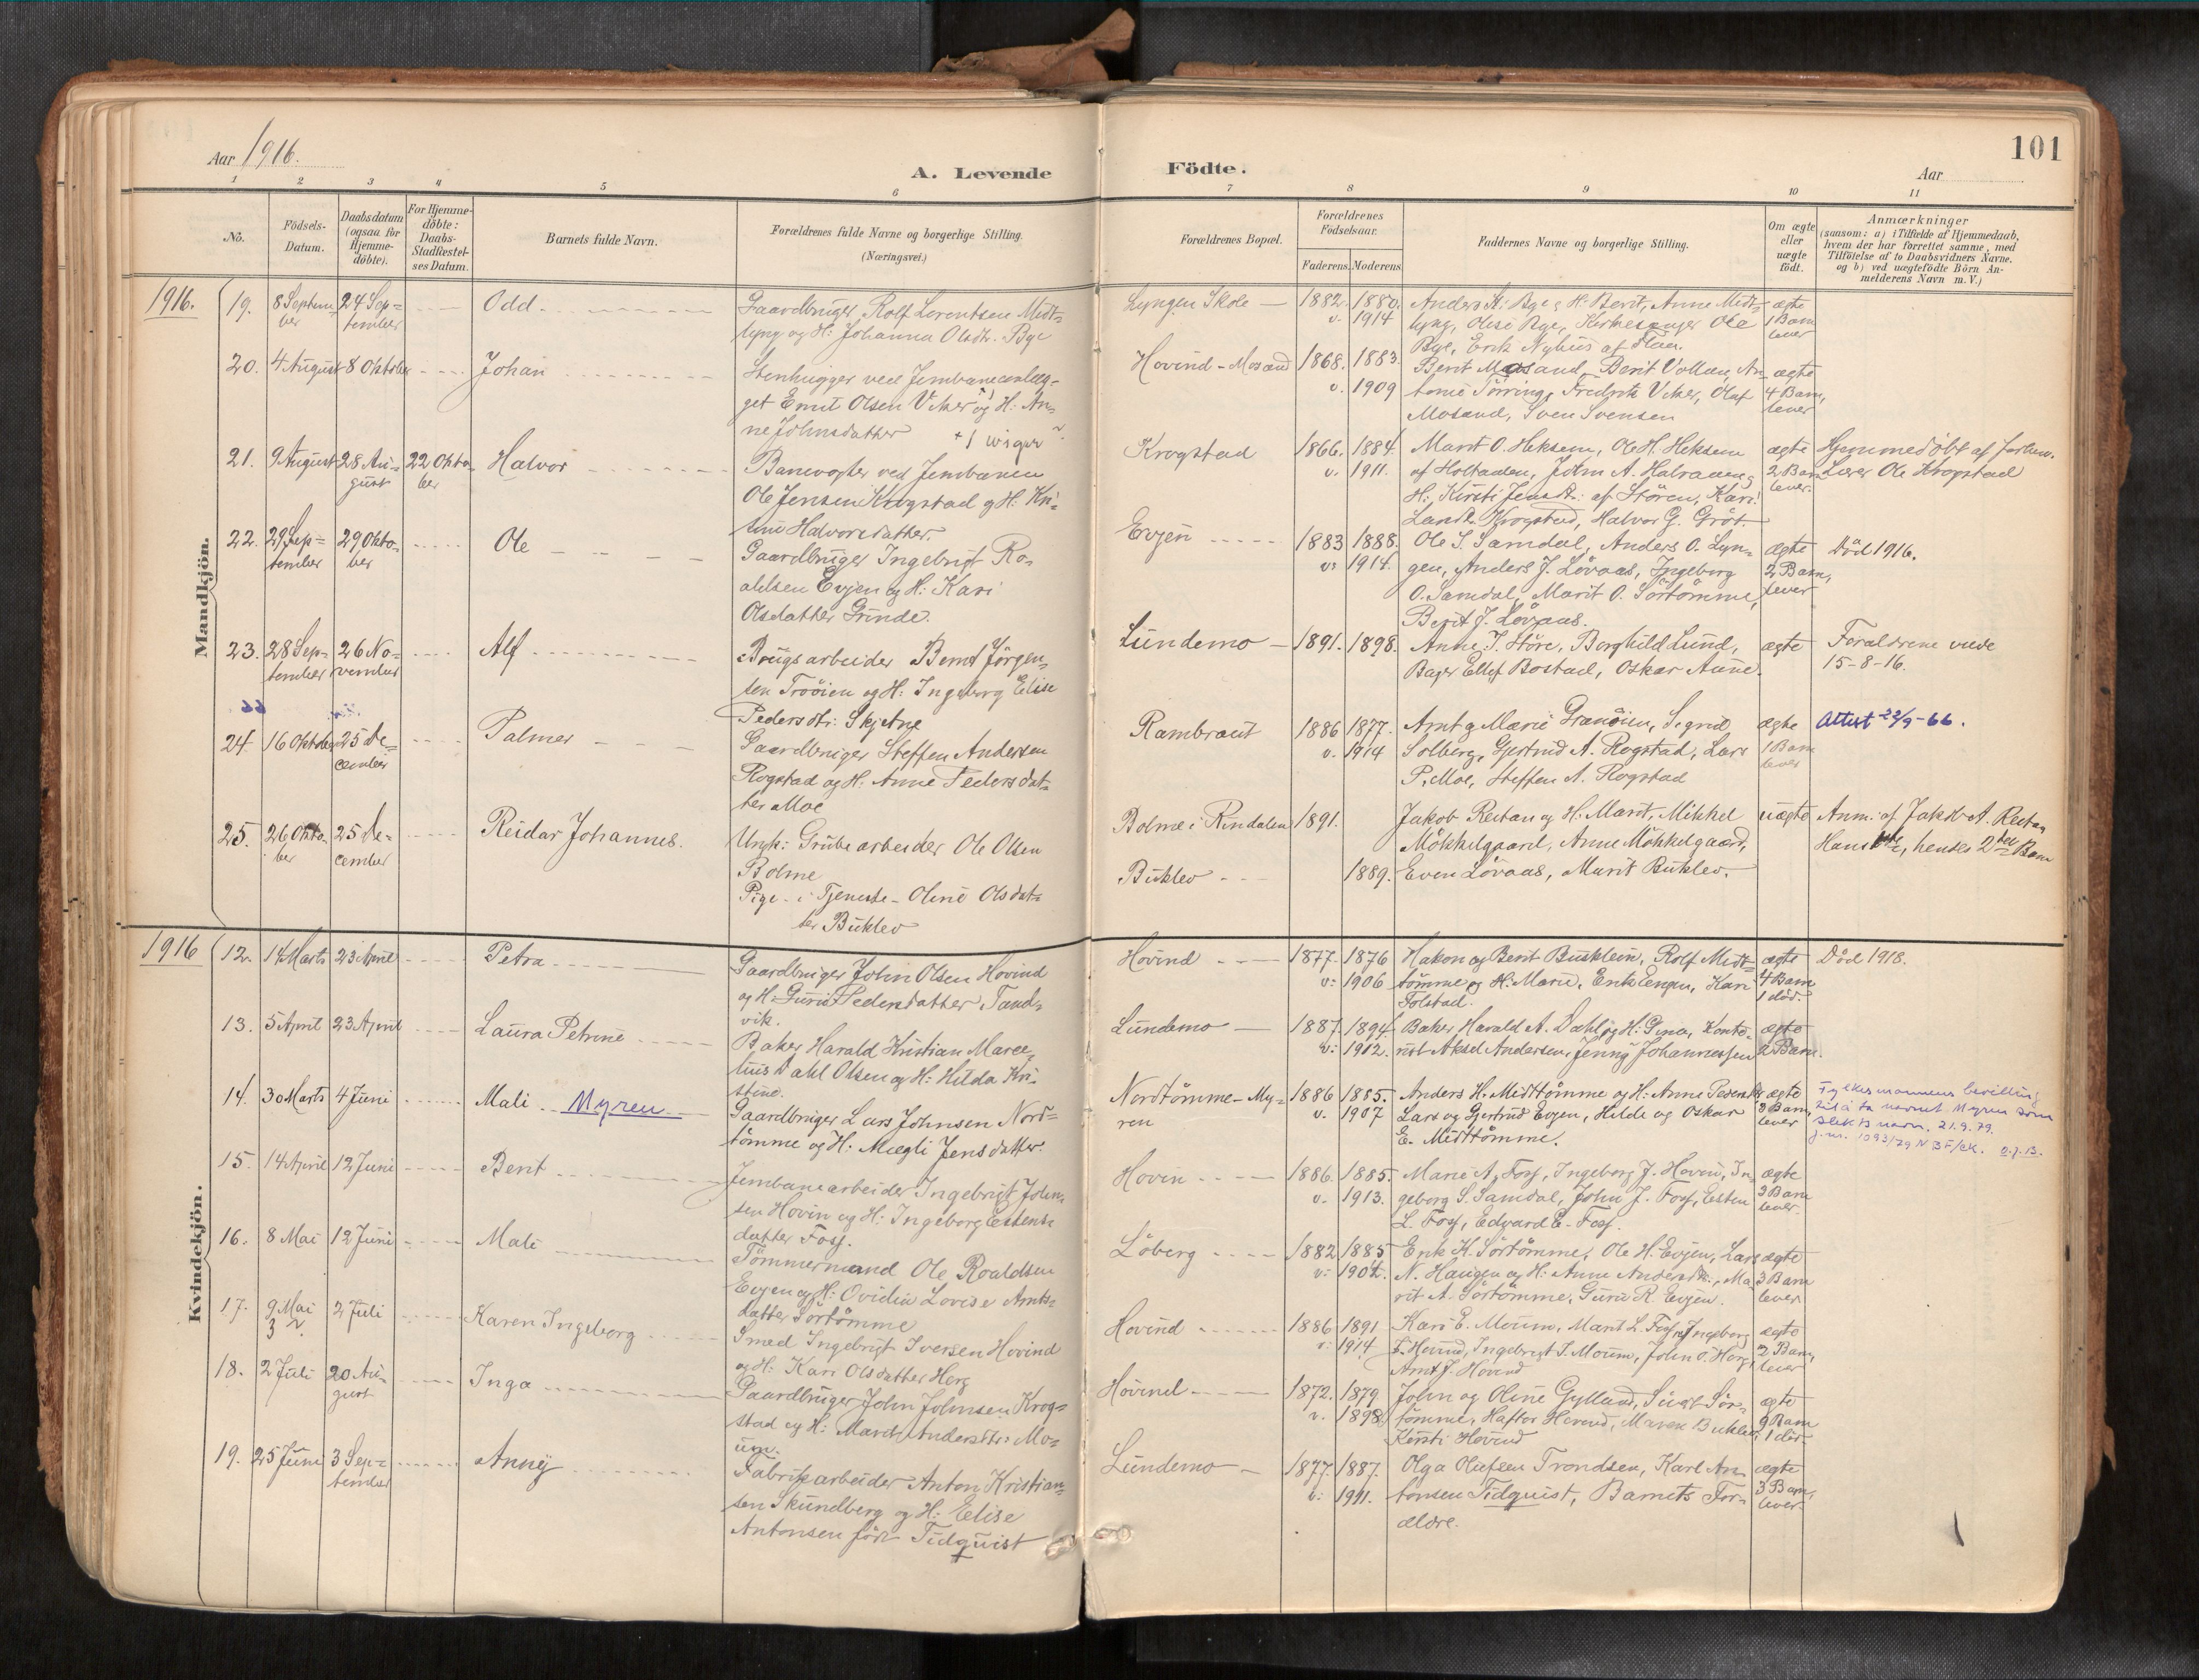 Aar 1916.
A. Levende
Födte.
101
Aar
1 2 3 4 5 6 7 8 9 10 11
No.
Födsels-
Datum.
Daabsdatum
(ogsaa for
Hjemme-
döbte).
For Hjemme-
döbte:
Daabs-
Stadfæstel-
ses Datum.
Barnets fulde Navn.
Forældrenes fulde Navne og borgerlige Stilling.
(Næringsvei.)
Forældrenes Bopæl.
Forældrenes
Födselsaar.
Faderens. Moderens.
Faddernes Navne og borgerlige Stilling.
Om ægte
eller
uægte
födt.
Anmærkninger
(saasom: a) i Tilfælde af Hjemmedaab,
hvem der har forrettet samme, med
Tilföielse af to Daabsvidners Navne.
og b) ved uægtefödte Börn An-
melderens Navn m. V.)
Mandkjön.
1916.
19. 8 Septem-
ber
24 Sep=
tember
Odd.
Gaardbruger Rolf Lorentsen Midt=
lyng og H: Johanna Olsdtr. Bye
Lyngen Skole
1882. 1880.
v. 1914
Anders A. Bye og H: Berit, Anne Midt=
lyng, Olise Bye, Kirkesanger Ole
Bye, Erik Nyhus af Flaa.
ægte
1 Barn
lever
20. 4 August 8 Oktober
Johan
Stenhugger ved Jernbaneanlæg-
get Ernst Olsen Viker og H: An=
ne Johnsdatter
Hovind - Mosand
1868. 1883.
v. 1909
Berit Mosand, Berit Vollan, An=
tonie Törring, Fredrik Viker, Olaf
Mosand, Sven Svensen
ægte
4 Barn,
lever
21. 9 August 28 Au-
gust
22 Okto-
ber
Halvor
Banevogter ved Jernbanen
Ole Jensen Krogstad og H: Kri-
stine Halvorsdatter.
Krogstad
1866. 1884.
v. 1911.
Marit O. Heksem, Ole H. Heksem
af Holtaden, John A. Halvaaen og
H: Kirsti Jensdtr: af Stören, Kari
Larsdtr Krogstad, Halvor G. Gröt.
ægte
2 Barn
lever.
Hjemmedöbt af forhen.
Lærer Ole Krogstad
22. 29 Sep=
tember
29 Okto-
ber
Ole
Gaardbruger Ingebrigt Ro-
aldsen Evjen og H: Kari
Olsdatter Grinde.
Evjen
1883 1888.
v: 1914.
Ole S. Samdal, Anders O. Lyn=
gen, Anders J. Løvaas, Ingeborg
O. Samdal, Marit O. Sörtömme,
Berit J. Løvaas.
ægte
2 Barn,
lever
Död 1916.
23. 28 Sep-
tember
26 No-
vember
Alf
Brugsarbeider Bernt Jörgen-
sen Tröien og H: Ingeborg Elise
Pedersdtr: Skjetne
Lundemo
1891. 1898.
Anne J. Störe, Borghild Lund,
Bager Ellef Bostad, Oskar Aune.
ægte
Forældrene viede
15-8-16.
66
24. 16 Oktober 25 De=
cember
Palmer
Gaardbruger Steffen Andersen
Rogstad og H: Anne Pedersdat=
ter Moe
Rambraut
1886 1877.
v. 1914
Arnt og Marie Granöien, Sigrid
Solberg, Gjertrud A. Rogstad, Lars
P. Moe, Steffen A. Rogstad
ægte
1 Barn
lever
Attest 22/9-66.
25. 26 Okto-
ber
25 De-
cember
Reidar Johannes.
Ungk: Grubearbeider Ole Olsen
Bolme
Pige i Tjeneste - Oline Olsdat=
ter Buklev
Bolme i Rindalen
Buklev
1891.
1889.
Jakob Reitan og H: Marit, Mikkel
Mökkelgaard, Anne Mökkelgaard,
Even Løvaas, Marit Buklev.
uægte
Anm: af Jakob A. Reitan
Hans 1ste, hendes 2det Barn
Kvindekjön.
1916
12. 14 Marts 23 April
Petra
Gaardbruger John Olsen Hovind
og H: Guru Pedersdatter Tand=
vik.
Hovind
1877. 1876
v: 1906
Hakon og Berit Busklein, Rolf Midt=
tömme og H: Marie, Erik Engan, Kari
Folstad.
ægte
4 Barn
1 död.
Död 1918.
13. 5 April 23 April
Laura Petrine
Baker Harald Kristian Marce-
lius Dahl Olsen og H: Hilda Kri-
stine.
Lundemo
1887. 1894.
v: 1912.
Baker Harald A. Dahl og H: Gina, Konto-
rist Aksel Andersen, Jenny Johannessen
ægte
2 Barn.
14. 30 Marts 4 Juni
Mali Myren
Gaardbruger Lars Johnsen Nord=
tömme og H: Magli Jensdatter.
Nordtömme - My-
ren
1886 1885.
v. 1907
Anders H. Midttömme og H: Anne Pedersdtr
Lars og Gjertrud Evjen, Hilda og Oskar
E. Midttömme.
ægte
3 Barn,
lever
Fylkesmannens bevilling
til å ta navnet Myren som
slektsnavn. 21.9.79.
j.nr. 1093/79 N BF/ek.
15. 14 April 12 Juni
Berit
Jernbanearbeider Ingebrigt John-
sen Hovin og H: Ingeborg Estens-
datter Foss.
Hovin
1886. 1885.
v. 1913.
Marie A. Foss, Ingeborg J. Hovin, In-
geborg S. Samdal, John J. Foss, Esten
L. Foss, Edvard E. Foss.
ægte
2 Barn
lever.
16. 8 Mai 12 Juni
Mali
Tömmermand Ole Roaldsen
Evjen og H: Ovidia Lovise Arnts=
datter Sörtömme
Löberg
1882 1885
v: 1904.
Erik K. Sörtömme, Ole H. Evjen, Lars
N. Haugen og H: Anne Andersdtr., Ma-
rit A. Sörtömme, Guru R. Evjen.
ægte
3 Barn
lever
17. 9 Mai
2 Juli
Karen Ingeborg
Smed Ingebrigt Iversen Hovind
og H: Kari Olsdatter Horg
Hovind
1886 1891
v: 1914
Kari E. Moum, Marit L. Foss, Ingeborg
J. Hovind, Ingebrigt I. Moum, John O. Horg,
Arnt J. Hovind
ægte
2 Barn,
lever
18. 2 Juli 20 Au-
gust
Inga
Gaardbruger John Johnsen Krog=
stad og H: Marit Andersdtr: Mo=
um.
Hovind
1872. 1879
v. 1898.
John og Oline Gylland, Sivert Sör-
tömme, Haftor Hovind, Maren Buklev,
Kirsti Hovind
ægte
9 Barn
1 död.
19. 25 Juni 3 Sep=
tember
Anny
Fabrikarbeider Anton Kristian-
sen Skundberg og H: Elise
Antonsen född Tidquist
Lundemo
1877. 1887.
v: 1911.
Olga Olufsen Trondsen, Karl An=
tonsen Tidquist, Barnets For-
ældre.
ægte
3 Barn,
lever